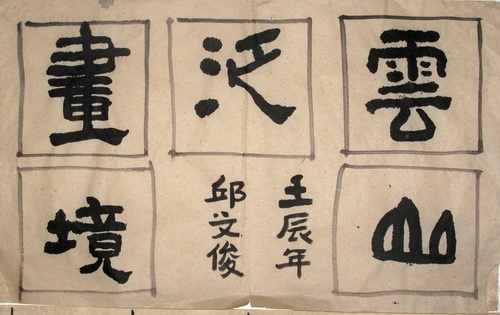 雲山
泛
畫境
壬辰年
邱文俊